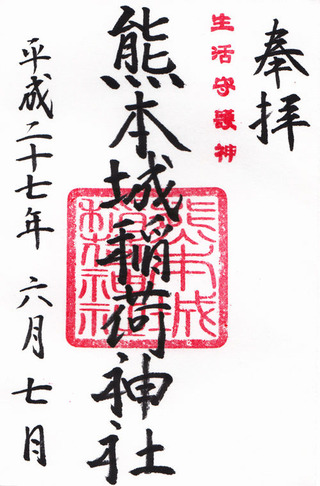 奉拝
生活守護神
熊本城稲荷神社
熊本城
稲荷神社
平成二十七年 六月 七月